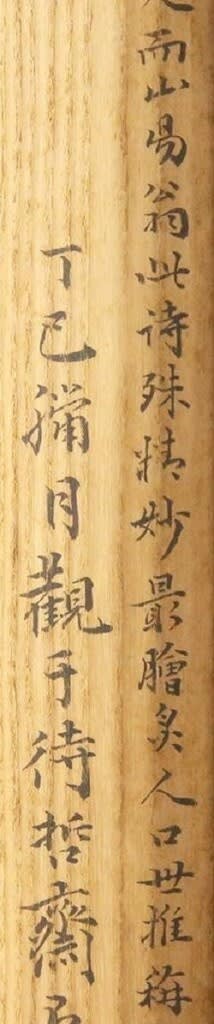 而山昜翁此詩殊精妙最膾炙人口世推稱
丁巳臈月觀于待哲齋